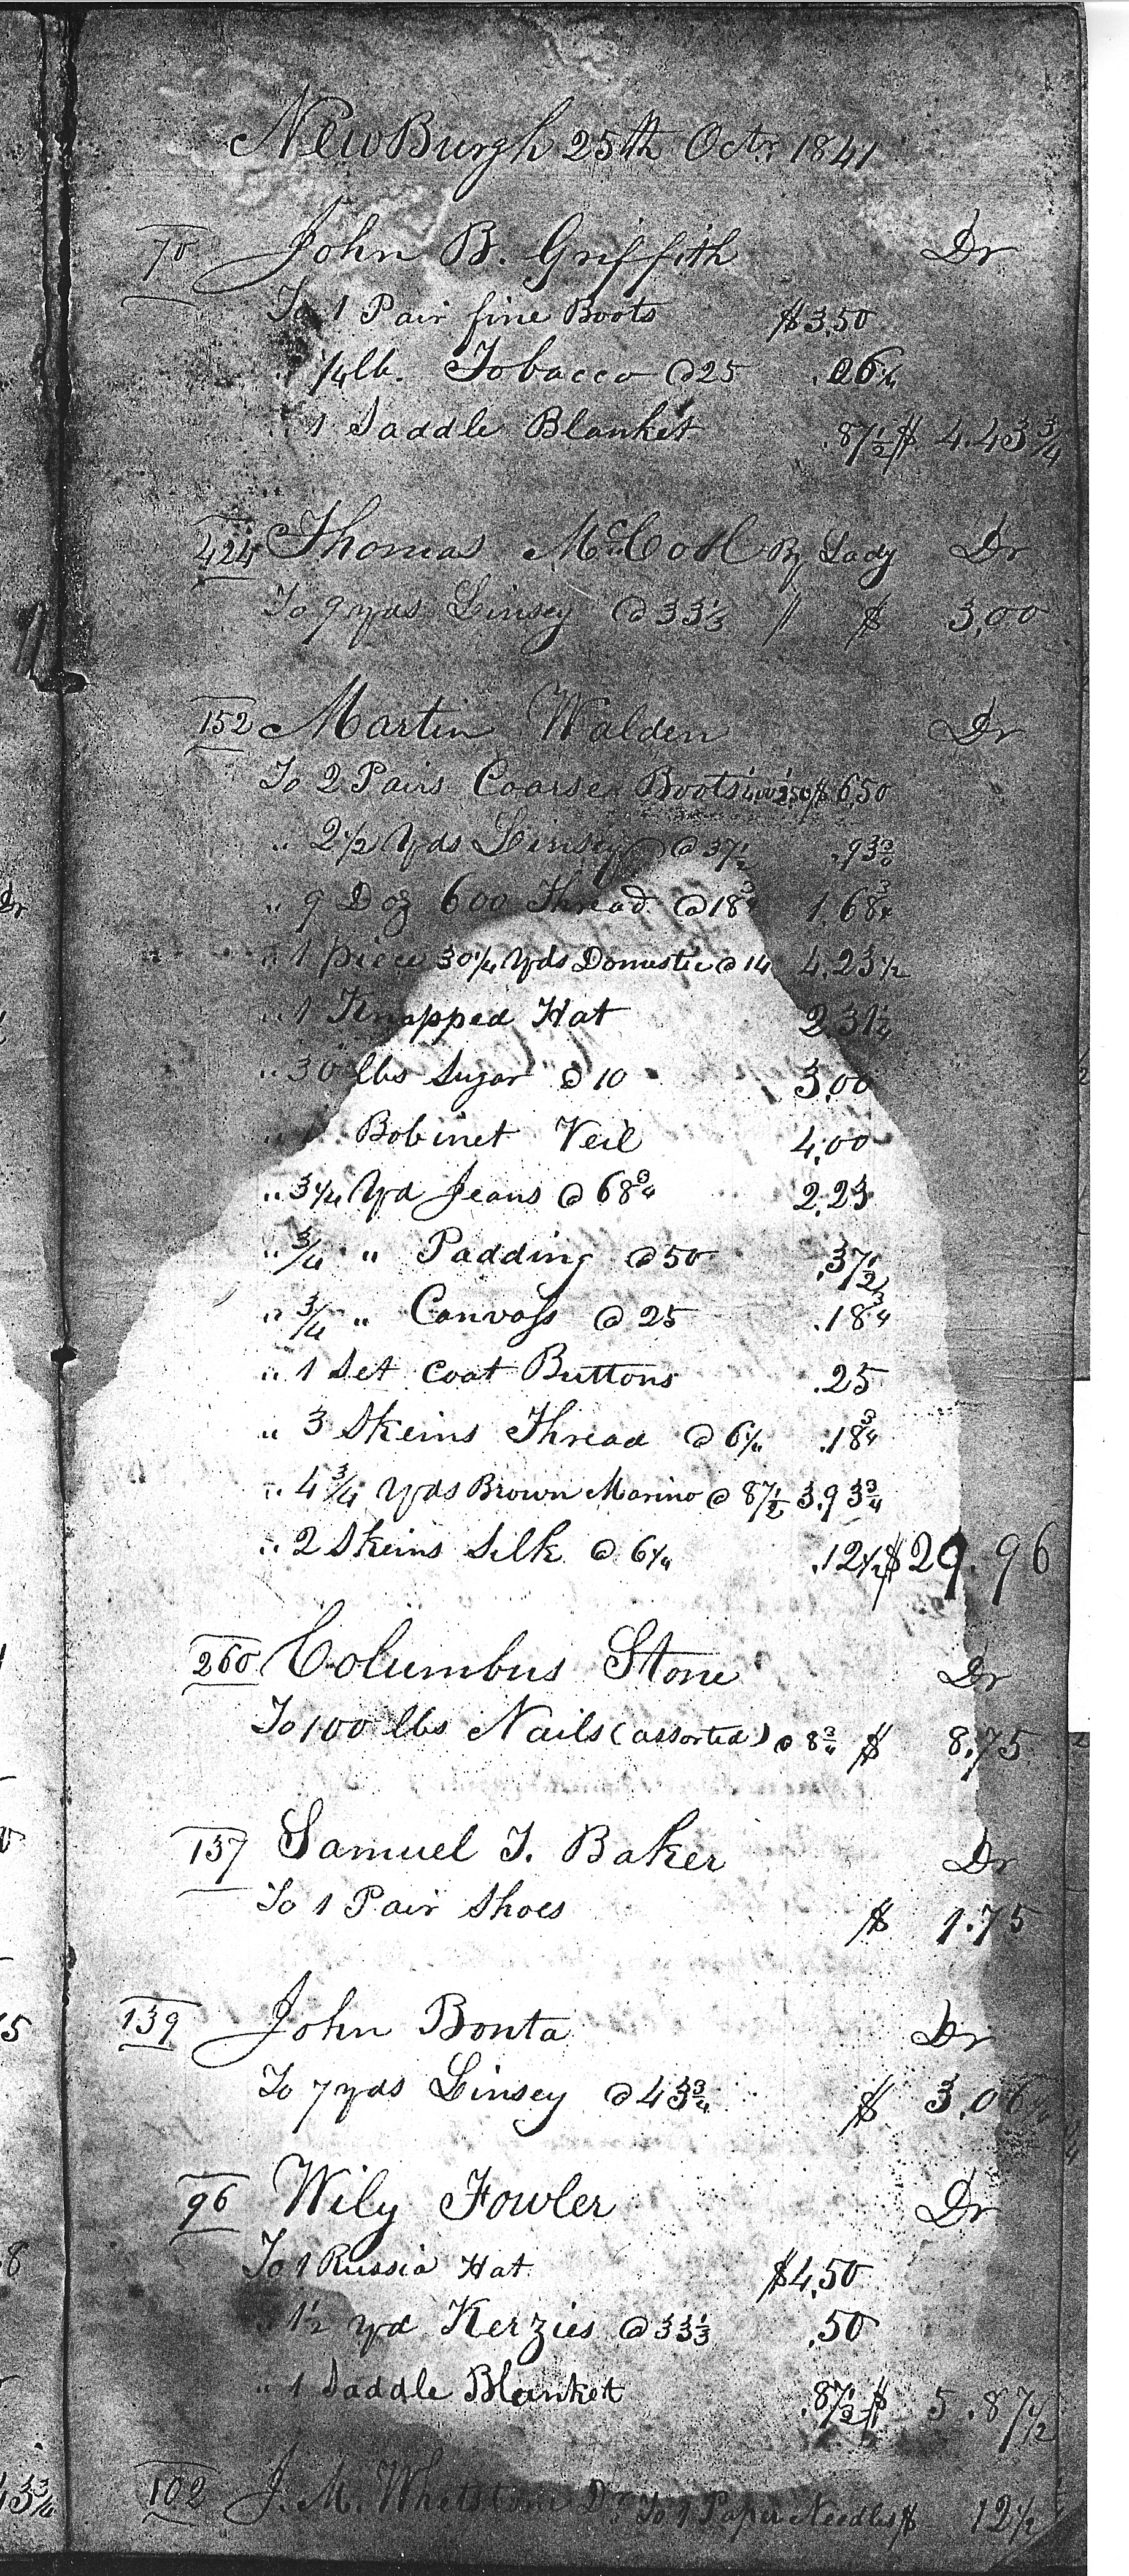 NewBurgh 25th Octr. 1841
70 John B. Griffith Dr
To 1 Pair fine Boots $3.50
" 1/4 lb. Tobacco @ 25 .06 1/4
" 1 Saddle Blanket .87 1/2 $ 4.43 3/4
424 Thomas By Lady Dr
To 9 yds Linsey @ 33 1/3 " $ 3.00
152 Martin Walden Dr
To 2 Pairs Coarse Boots 400 250 $ 6.50
" 2 1/2 Yds Linsey @ 37 1/2 .93 3/4
" 9 Doz 600 Thread @ 18 3/4 1.68 3/4
" 1 piece 30 1/4 Yds Domestic @ 14 4.23 1/2
" 1 Knapped Hat 2.31 1/4
" 30 lbs Sugar @ 10 3.00
" 1 Bobinet Veil 4.00
" 3 1/4 Yd Jeans @ 68 3/4 2.23
" 3/4 " Padding @ 50 .37 1/2
" 3/4 " Canvass @ 25 .18 3/4
" 1 Set Coat Buttons .25
" 3 Skeins Thread @ 6 1/4 .18 3/4
" 4 3/4 Yds Brown Marino @ 87 1/2 3.93 3/4
" 2 Skeins Silk @ 6 1/4 .12 1/2 $ 29.96
260 Columbus Stone Dr
To 100 lbs Nails (assorted) @ 8 3/4 $ 8.75
137 Samuel T. Baker Dr
To 1 Pair Shoes $ 1.75
139 John Bonta Dr
To 7 yds Linsey @ 43 3/4 $ 3.06 1/4
96 Wily Fowler Dr
To 1 Russia Hat $4.50
" 1 1/2 yd Kerzies @ 33 1/3 .50
" 1 Saddle Blanket .87 1/2 $ 5.87 1/2
102 J. M. Dr To 1 Paper Needles $ 12 1/2